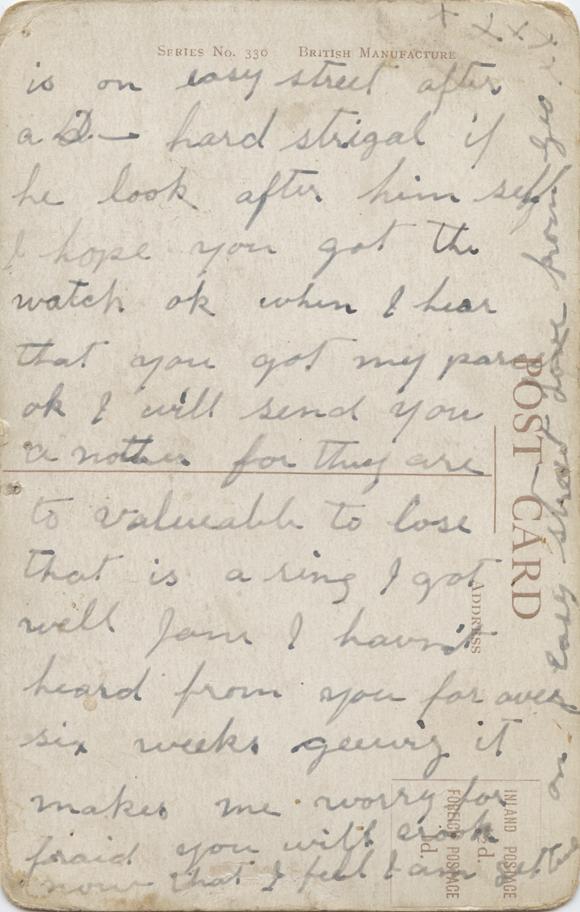 SERIES No. 330 BRITISH MANUFACTURE
x x x x
is on easy street after
a hard strigal if
he look after him self
I hope you got the
watch ok when I hear
that you got my
ok I will send you
a nother for they are
to valueable to lose
that is a ring I got
well I havn't
heard from you for over
six weeks it
makes me worry for
fraid you will
now that I feel I am
on easy street from
POST CARD
ADDRESS
INLAND POSTAGE
½d.
FOREIGN POSTAGE
1d.